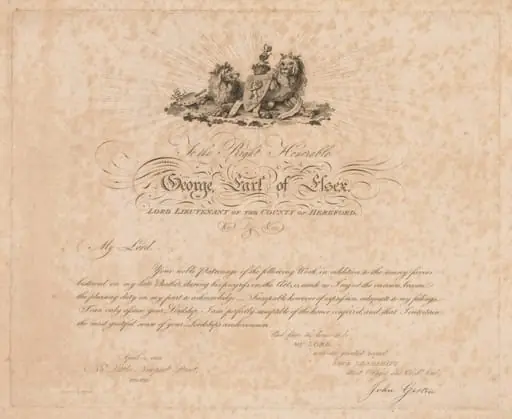 To the Right Honorable
George, Earl of Essex.
LORD LIEUTENANT OF THE COUNTY OF HEREFORD.
My Lord.
Your noble Patronage of the following Work in addition to the many favors
bestowed on my late Brother, during his progress in the Art, is such as I regret the
the pleasing duty on my part to acknowledge. Incapable however of expression adequate to my feelings
I can only assure your Lordship, I am perfectly sensible of the honor conferred, and that I entertain
the most grateful sense of your Lordship's condescension.
MY LORD
with the greatest regard
YOUR LORDSHIP'S
Most Obliged and Obedt.
April
Little Newport Street,
John Girtin